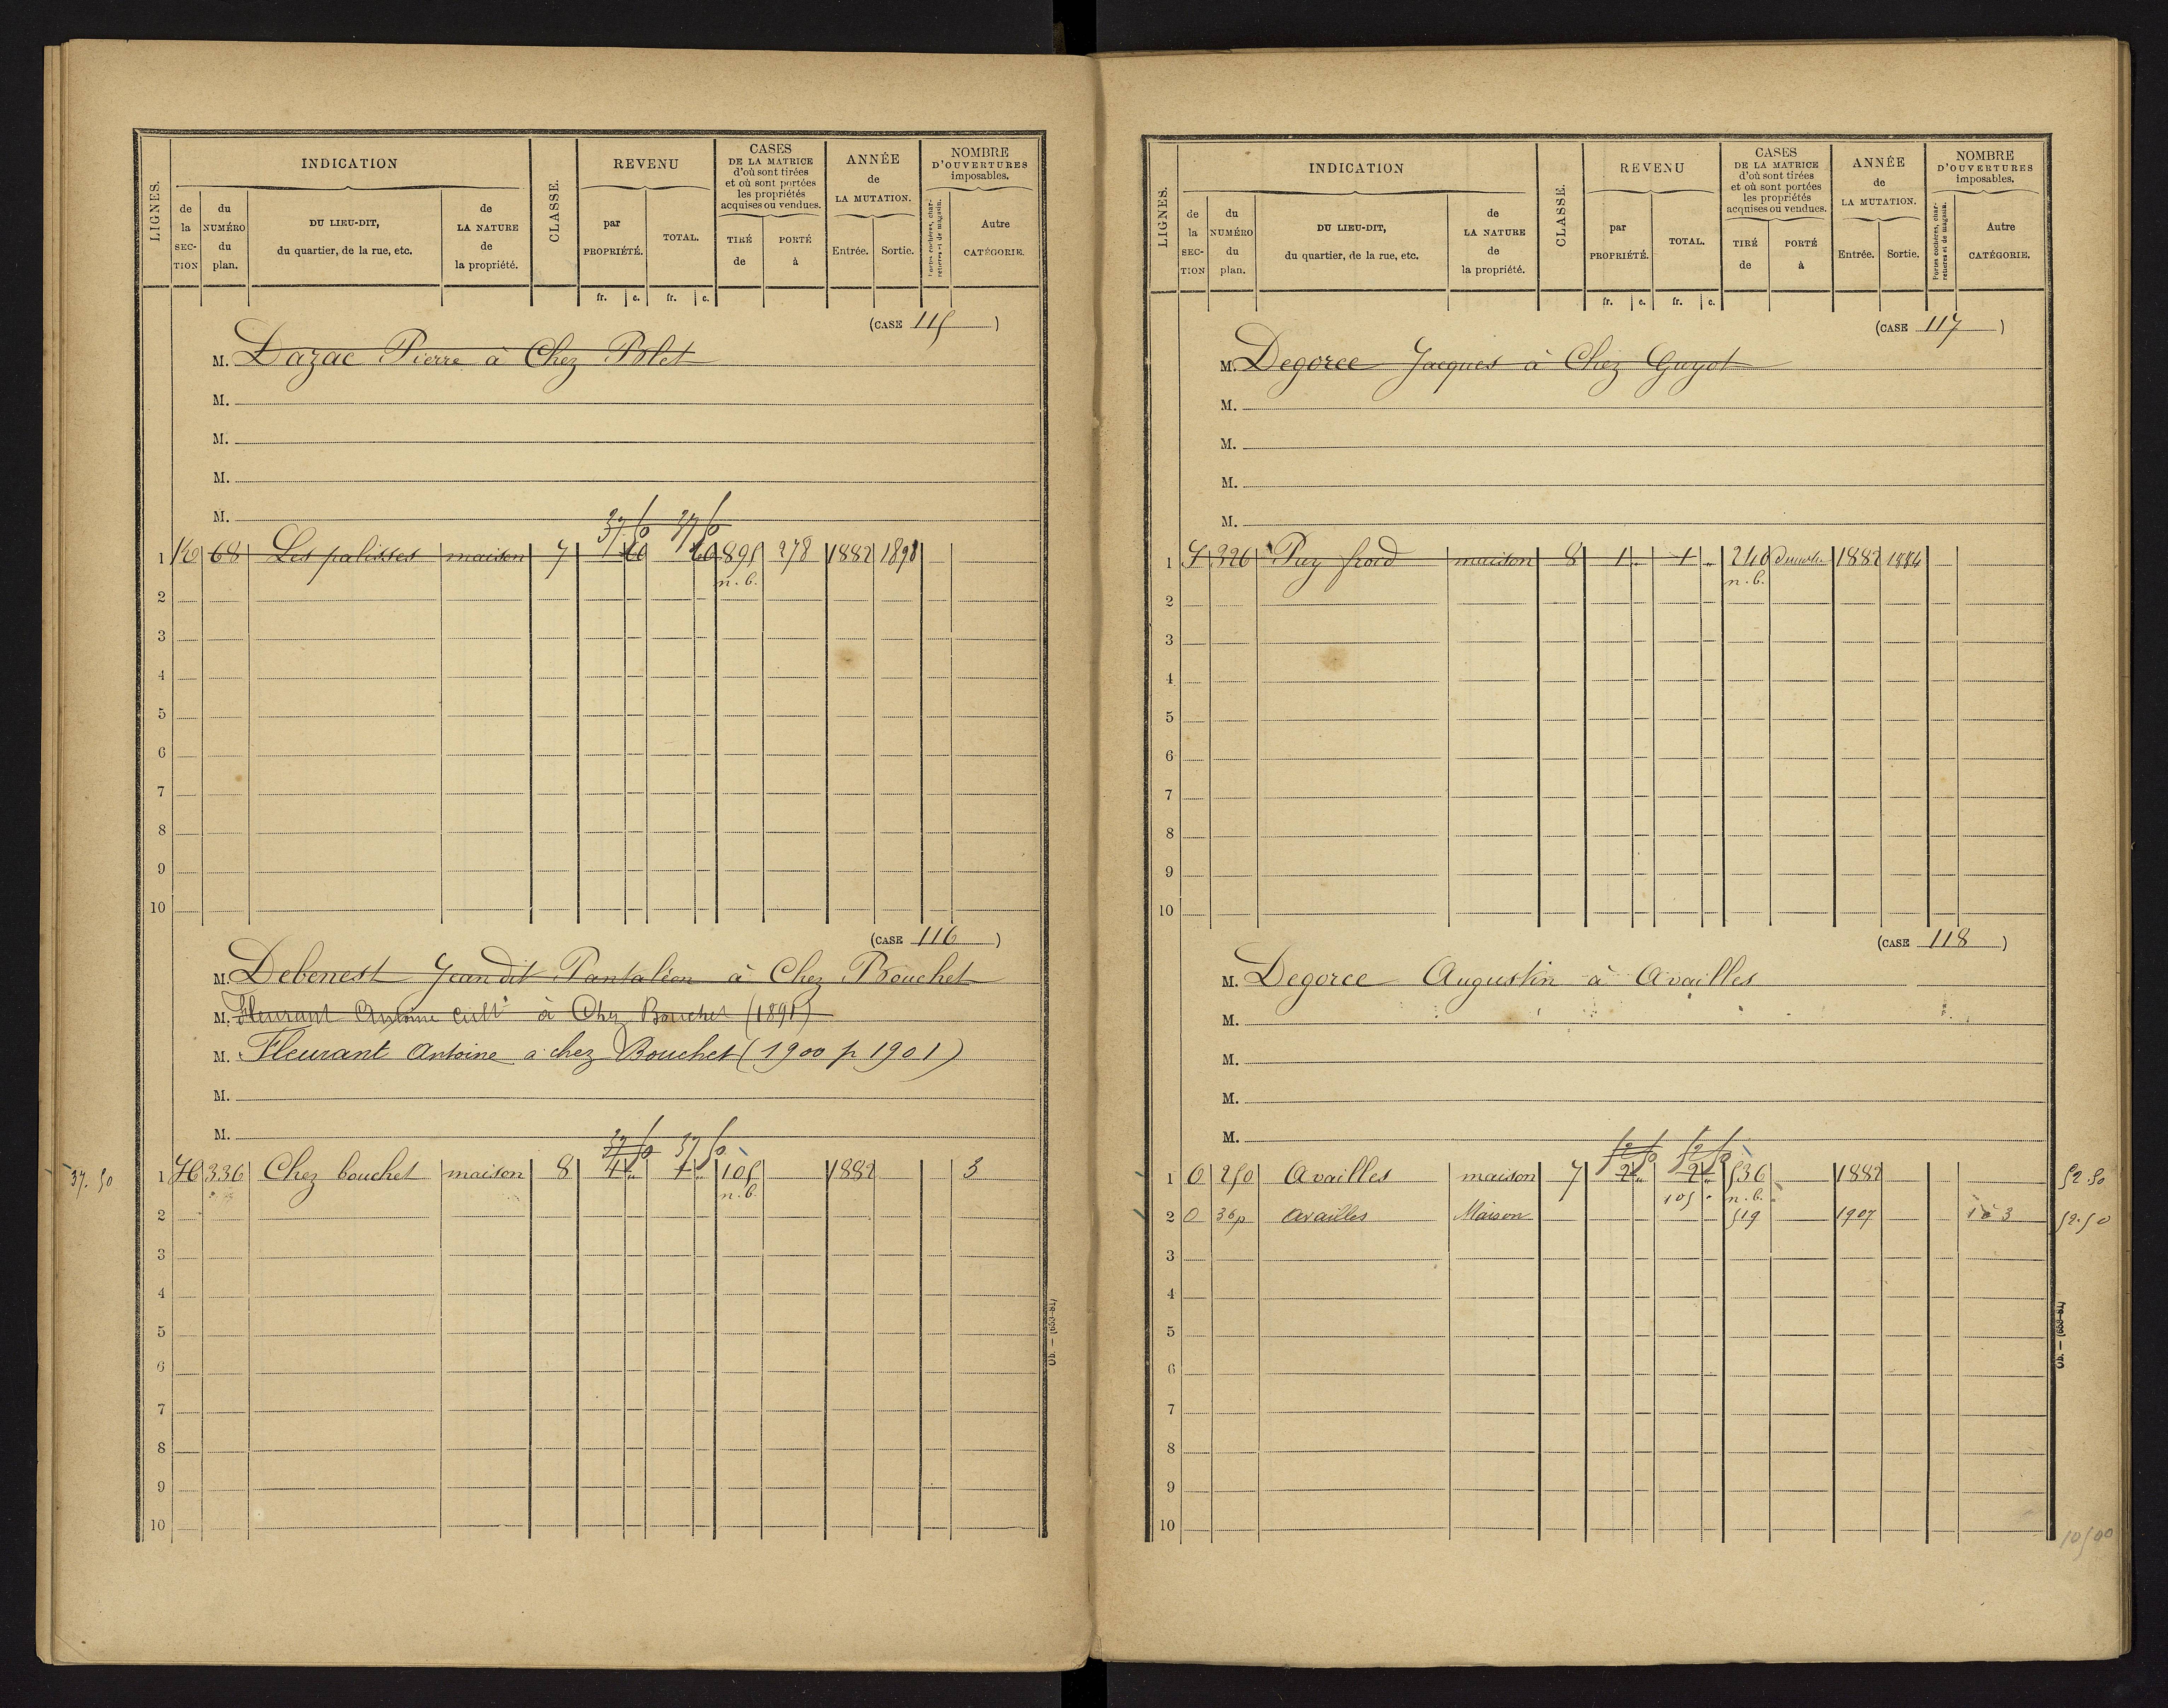 LIGNES.
INDICATION
de la SECTION
du NUMÉRO du plan.
DU LIEU-DIT, du quartier, de la rue, etc.
de LA NATURE de la propriété.
CLASSE.
REVENU
par PROPRIÉTÉ.
TOTAL.
fr. c. fr. c.
CASES
DE LA MATRICE
d'où sont tirées
et où sont portées
les propriétés
acquises ou vendues.
TIRÉ de
PORTÉ à
ANNÉE
de
LA MUTATION.
Entrée. Sortie.
NOMBRE
D'OUVERTURES
imposables.
Portes cochères, charretières et de magasin.
Autre CATÉGORIE.
(CASE 115)
M. Dazac Pierre à Chez Polet
M.
M.
M.
M.
37 50 37 50
1 K 68 Les palisses maison 7 1 60 1 60 895 278 1882 1898
n. b.
2
3
4
5
6
7
8
9
10
(CASE 116)
M. Debenest Jean dit Pantaléon à Chez Bouchet
M. Fleurant Antoine cultr à Chez Bouchet (1891)
M. Fleurant Antoine a chez Bouchet (1900 p 1901)
M.
M.
37 50 37 50
37. 50
1 H 336 Chez bouchet maison 8 1 " 1 " 105 1882 3
n. b.
2
3
4
5
6
7
8
9
10
LIGNES.
INDICATION
de la SECTION
du NUMÉRO du plan.
DU LIEU-DIT, du quartier, de la rue, etc.
de LA NATURE de la propriété.
CLASSE.
REVENU
par PROPRIÉTÉ.
TOTAL.
fr. c. fr. c.
CASES
DE LA MATRICE
d'où sont tirées
et où sont portées
les propriétés
acquises ou vendues.
TIRÉ de
PORTÉ à
ANNÉE
de
LA MUTATION.
Entrée. Sortie.
NOMBRE
D'OUVERTURES
imposables.
Portes cochères, charretières et de magasin.
Autre CATÉGORIE.
(CASE 117)
M. Degorce Jacques à Chez Guyot
M.
M.
M.
M.
1 326 Puy froid maison 8 1 " 1 " 240 1882 1884
n. b.
2
3
4
5
6
7
8
9
10
(CASE 118)
M. Degorce Augustin à Availles
M.
M.
M.
M.
52 50 52 50
1 O 250 Availles maison 7 2 " 2 " 536 1882 52.50
105 " n. b.
2 O 36p Availles Maison 519 1907 1 à 3 52.50
3
4
5
6
7
8
9
10
105 00